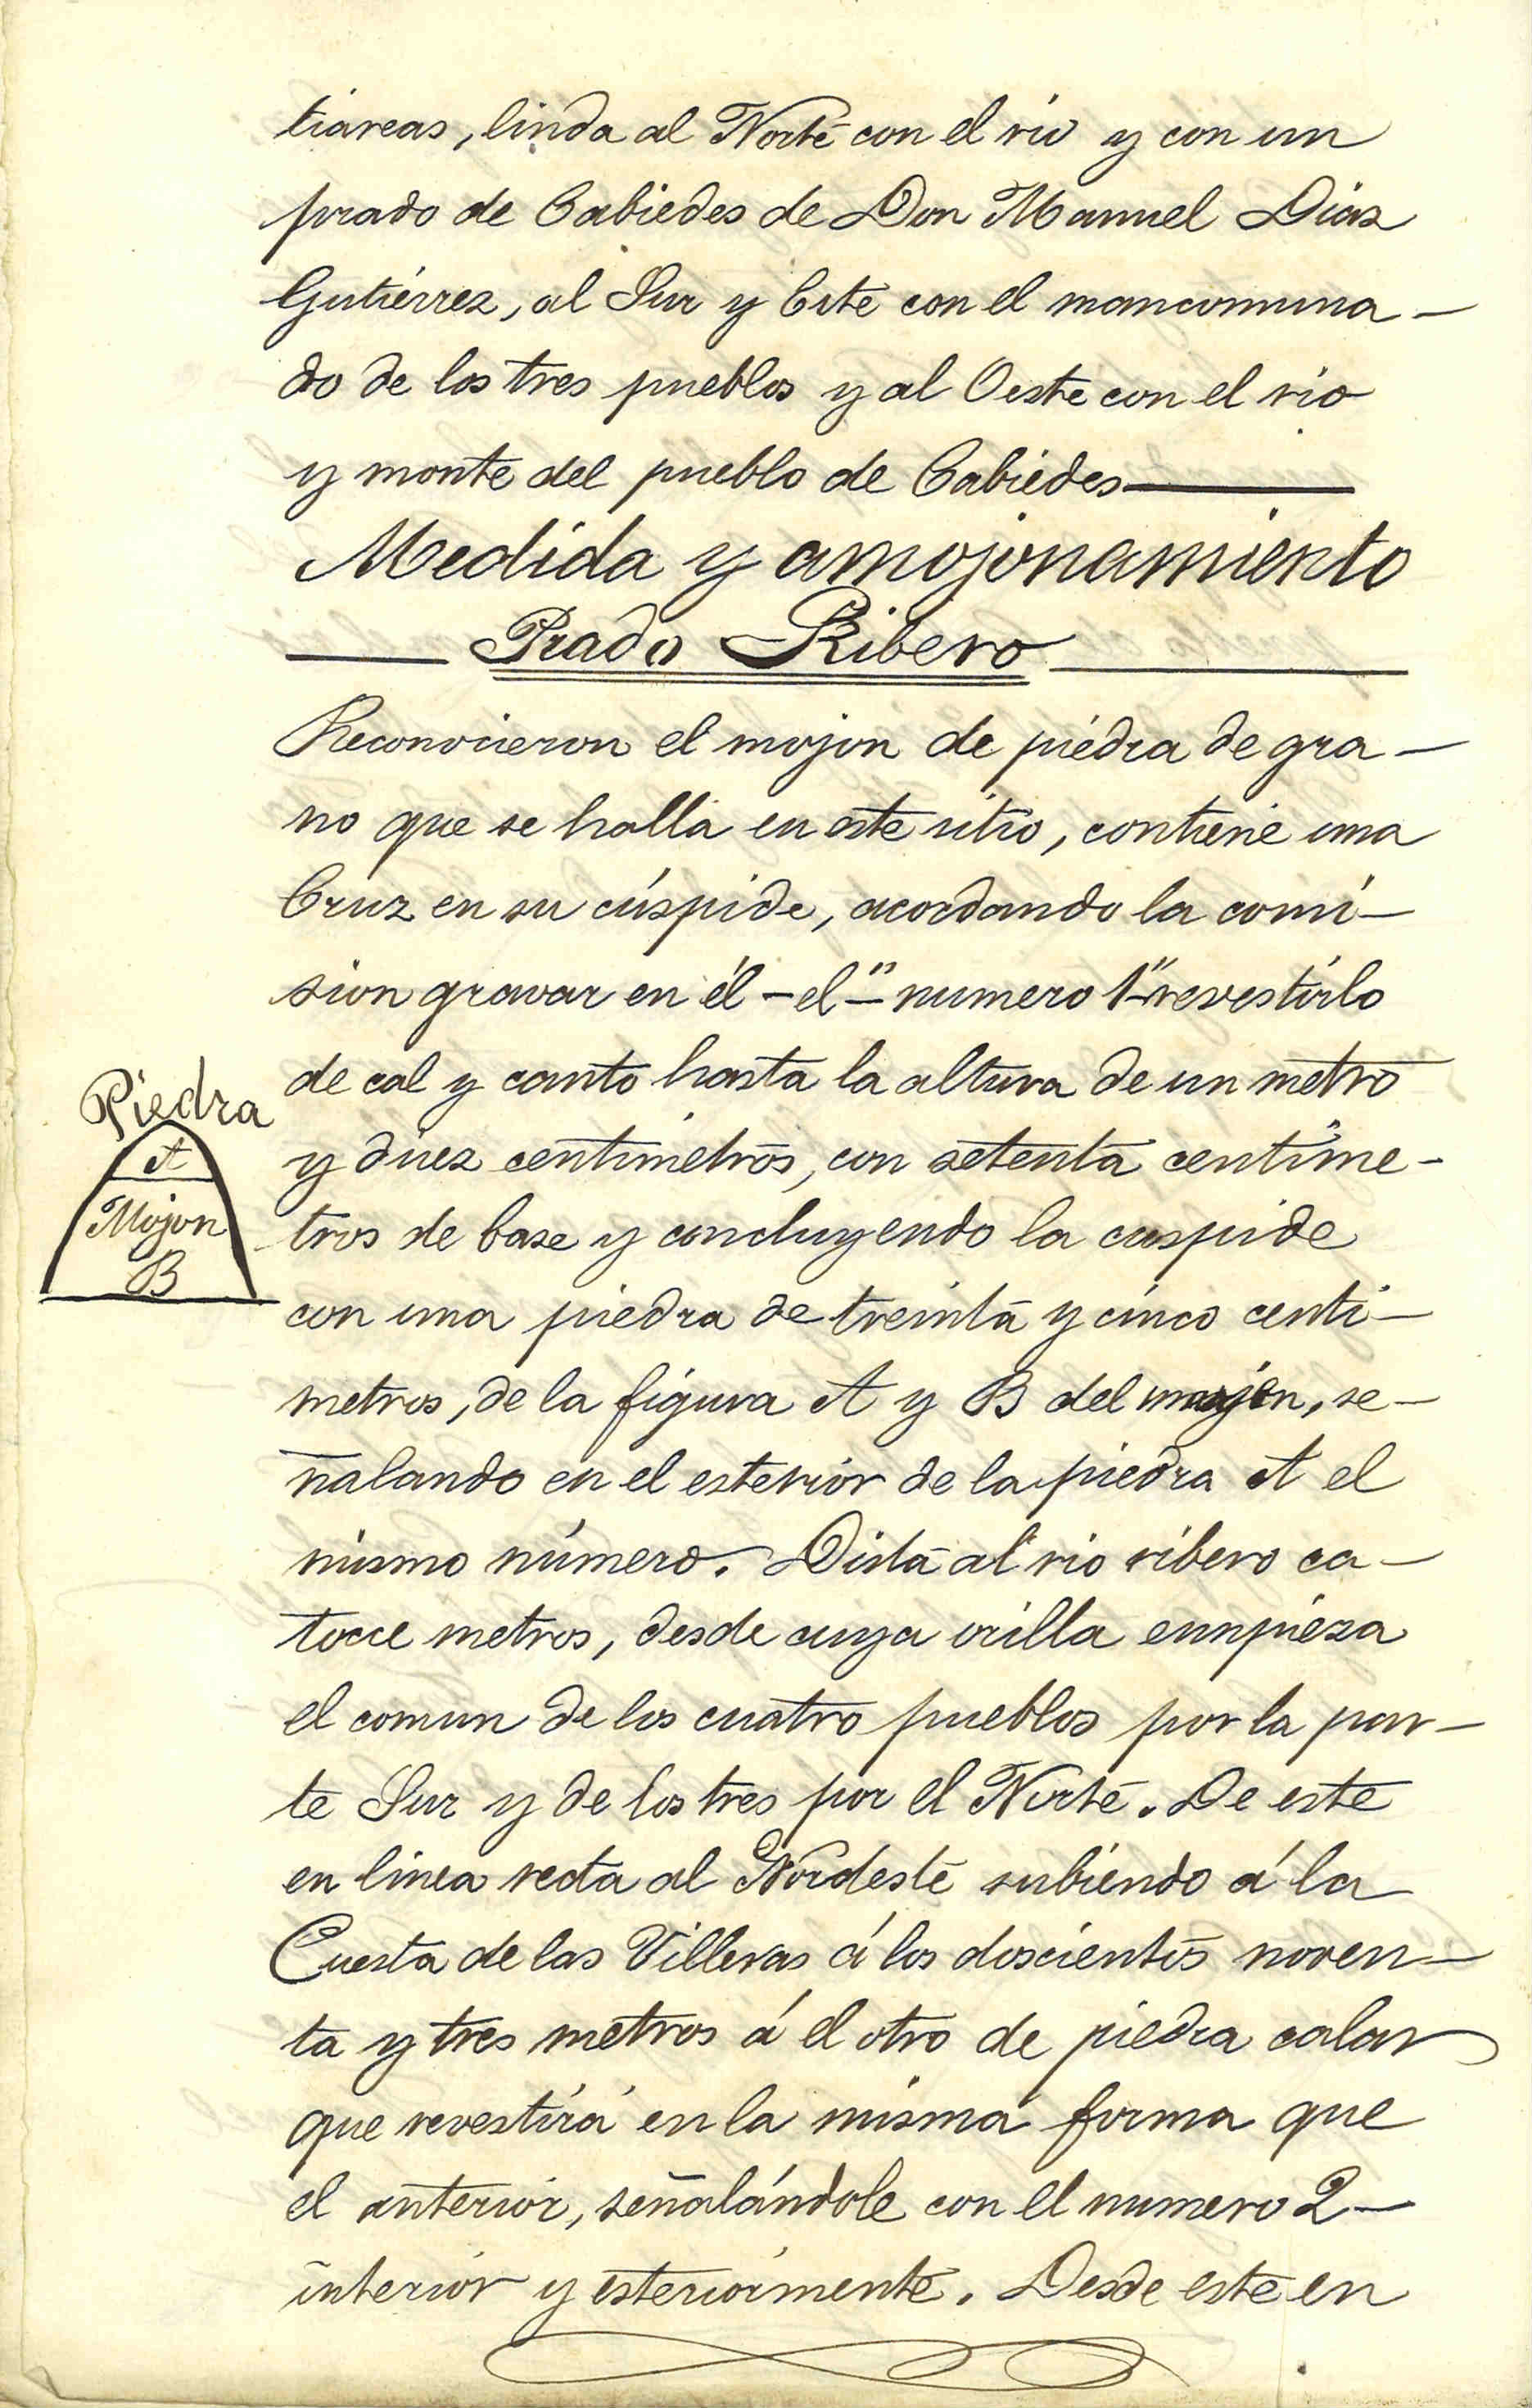 tiareas, linda al Norte con el rio y con un
prado de Cabiedes de Don Manuel Diaz
Gutiérrez, al Sur y Este con el mancomuna-
do de los tres pueblos y al Oeste con el rio
y monte del pueblo de Cabiedes
Medida y amojonamiento
Prado Ribero
Reconocieron el mojon de piedra de gra-
no que se halla en este sitio, contiene una
Cruz en su cúspide, acordando la comi-
sion gravar en él - el "- numero 1"- revestirlo
de cal y canto hasta la altura de un metro
y diez centimetros, con setenta centime-
tros de base y concluyendo la cuspide
con una piedra de treinta y cinco centi-
metros, de la figura A y B del mojon, se-
ñalando en el esterior de la piedra A el
mismo número. Dista al rio ribero ca-
torce metros, desde cuya orilla empieza
el comun de los cuatro pueblos por la par-
te Sur y de los tres por el Norte. De este
en linea recta al Nordeste subiendo á la
Cuesta de las Villeras á los doscientos noven-
ta y tres metros á el otro de piedra calar
que revestirá en la misma forma que
el anterior, señalándole con el numero 2-
interior y esteriormente. Desde este en
Piedra
A
Mojon
B